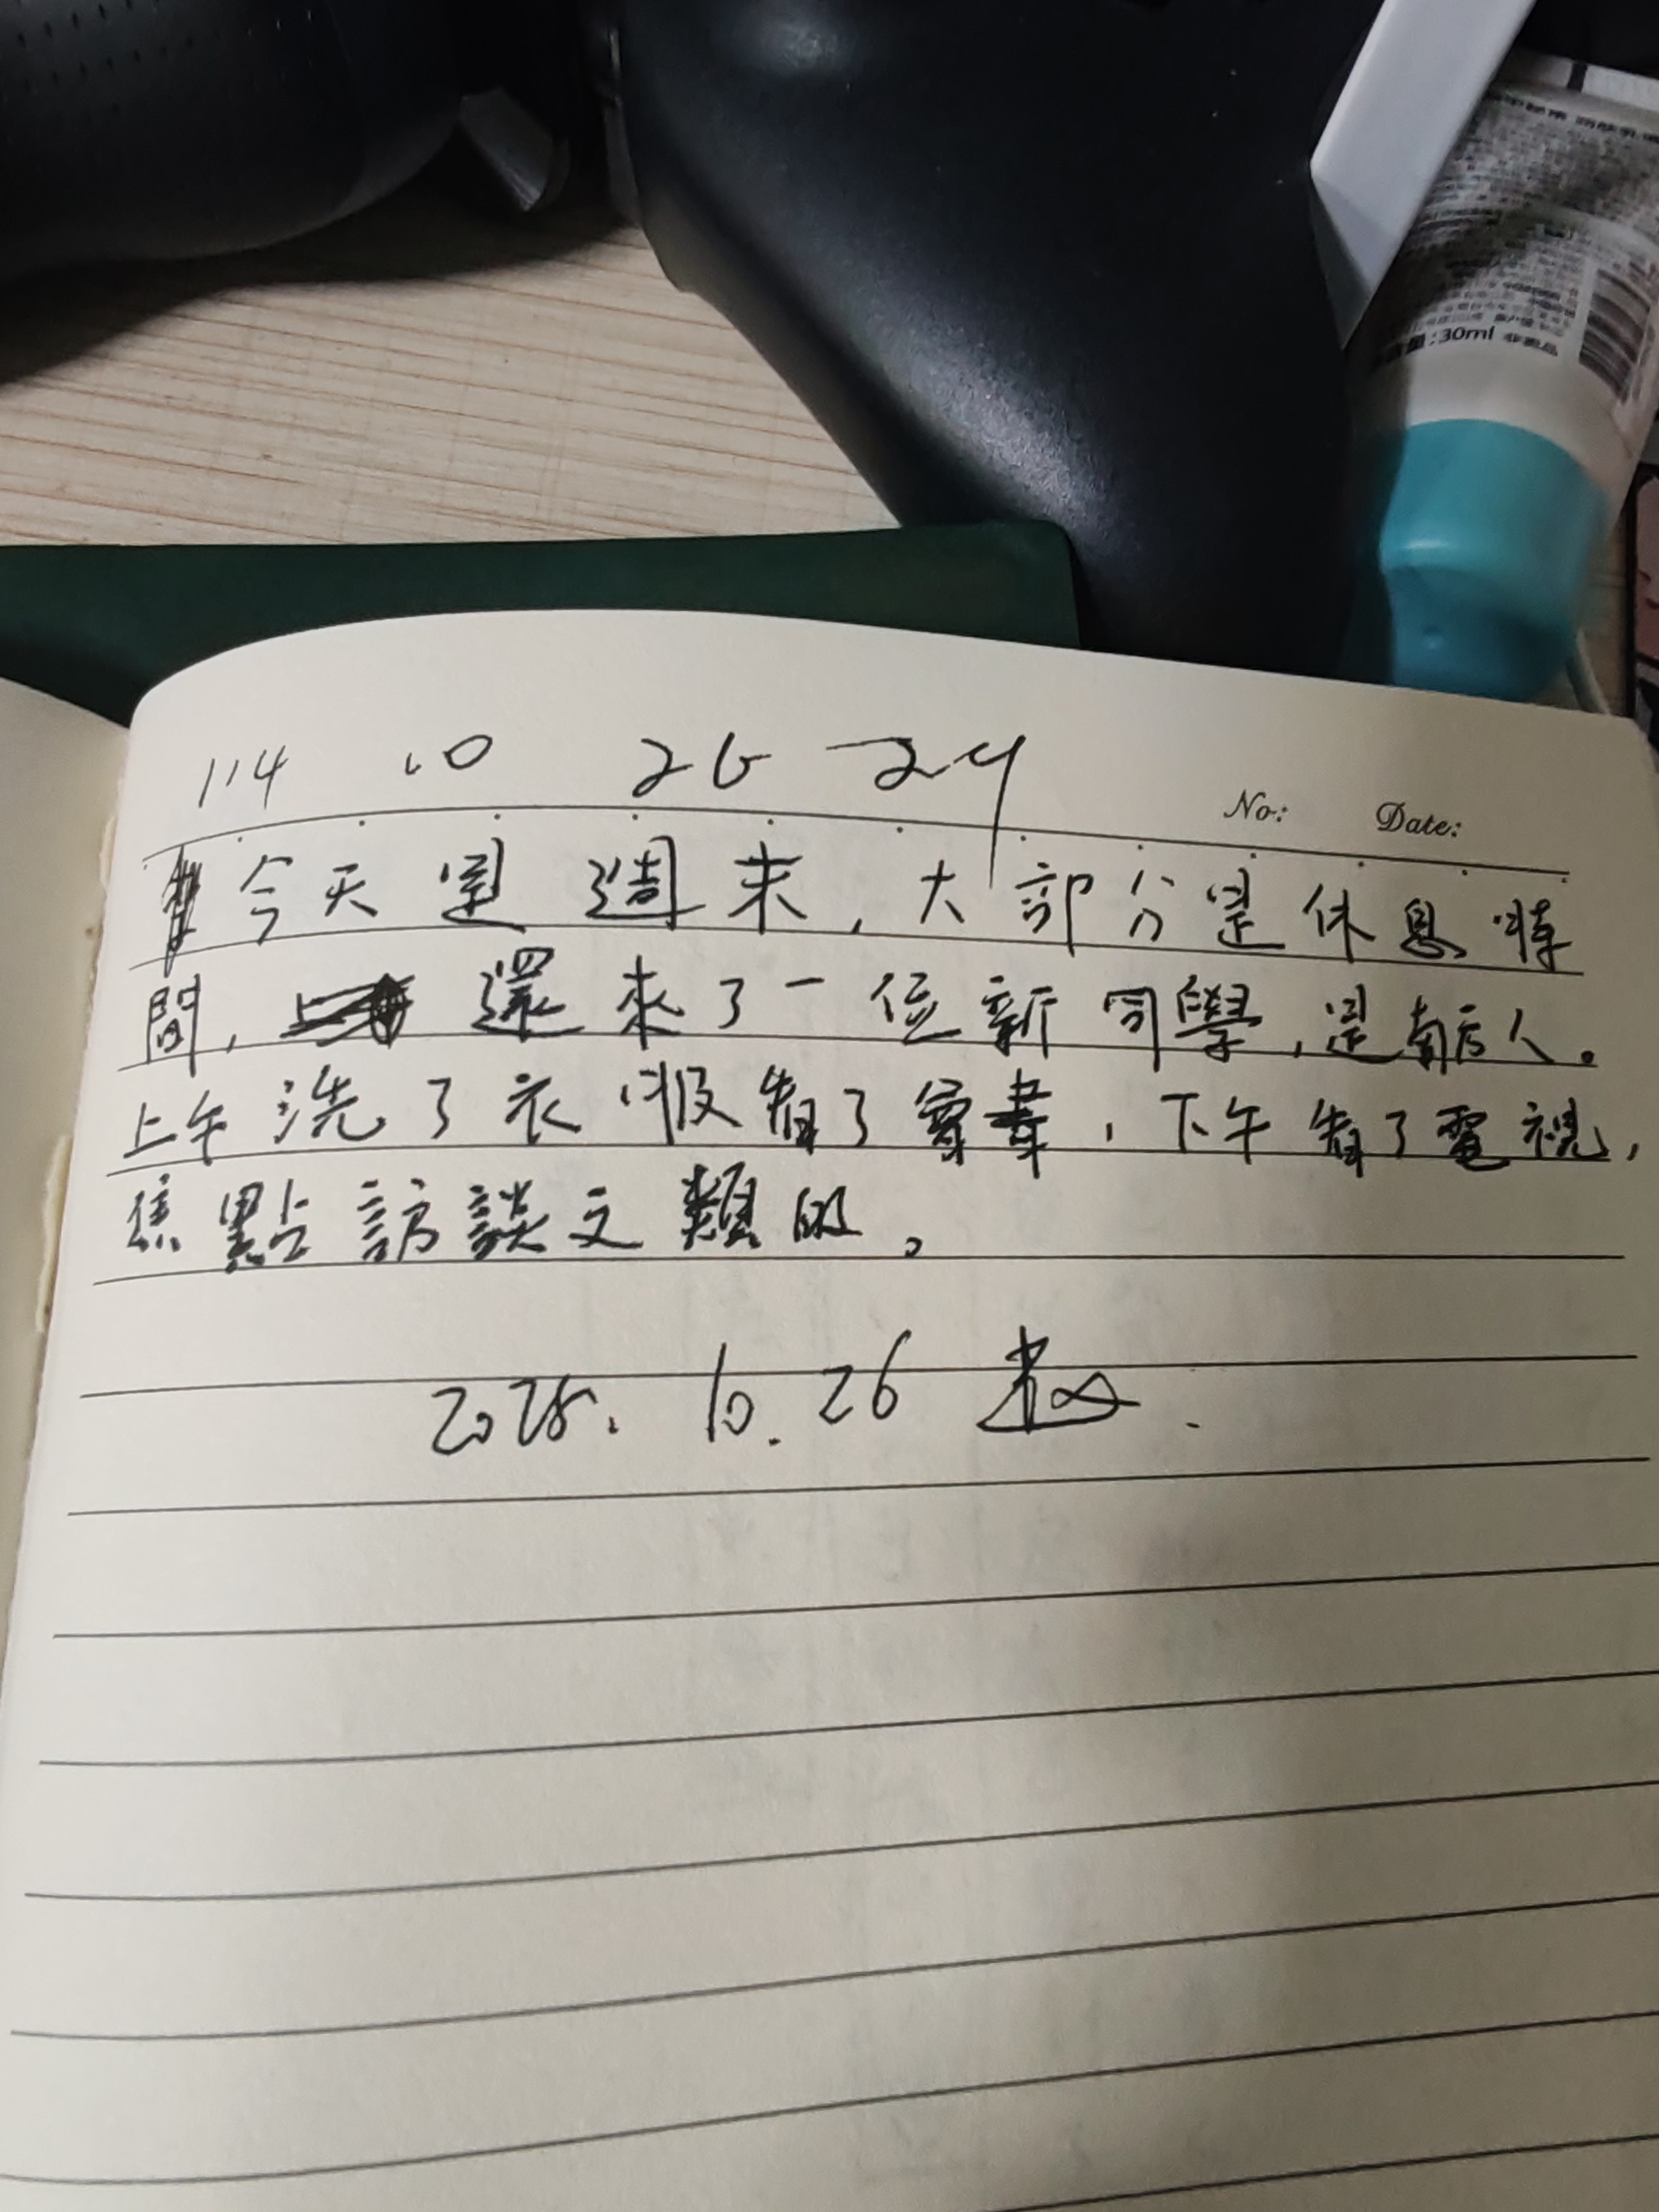 30ml
114 10 26 24
No: Date:
今天是週末，大部分是休息時
間，還來了一位新同學，是南方人。
上午洗了衣服看了會書，下午看了電視，
焦點訪談之類的。
2025. 10. 26